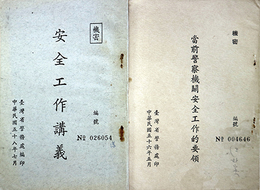 機密
安全工作講義
編號
№ 026054
臺灣省警務處編印
中華民國五十八年七月
機密
當前警察機關安全工作的要領
編號
№ 004646
臺灣省警務處印
中華民國五十六年五月